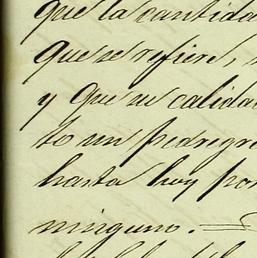 que la cantida
que se refiere,
y que su calida
to un pedregr
hasta hoy por
ninguno. —